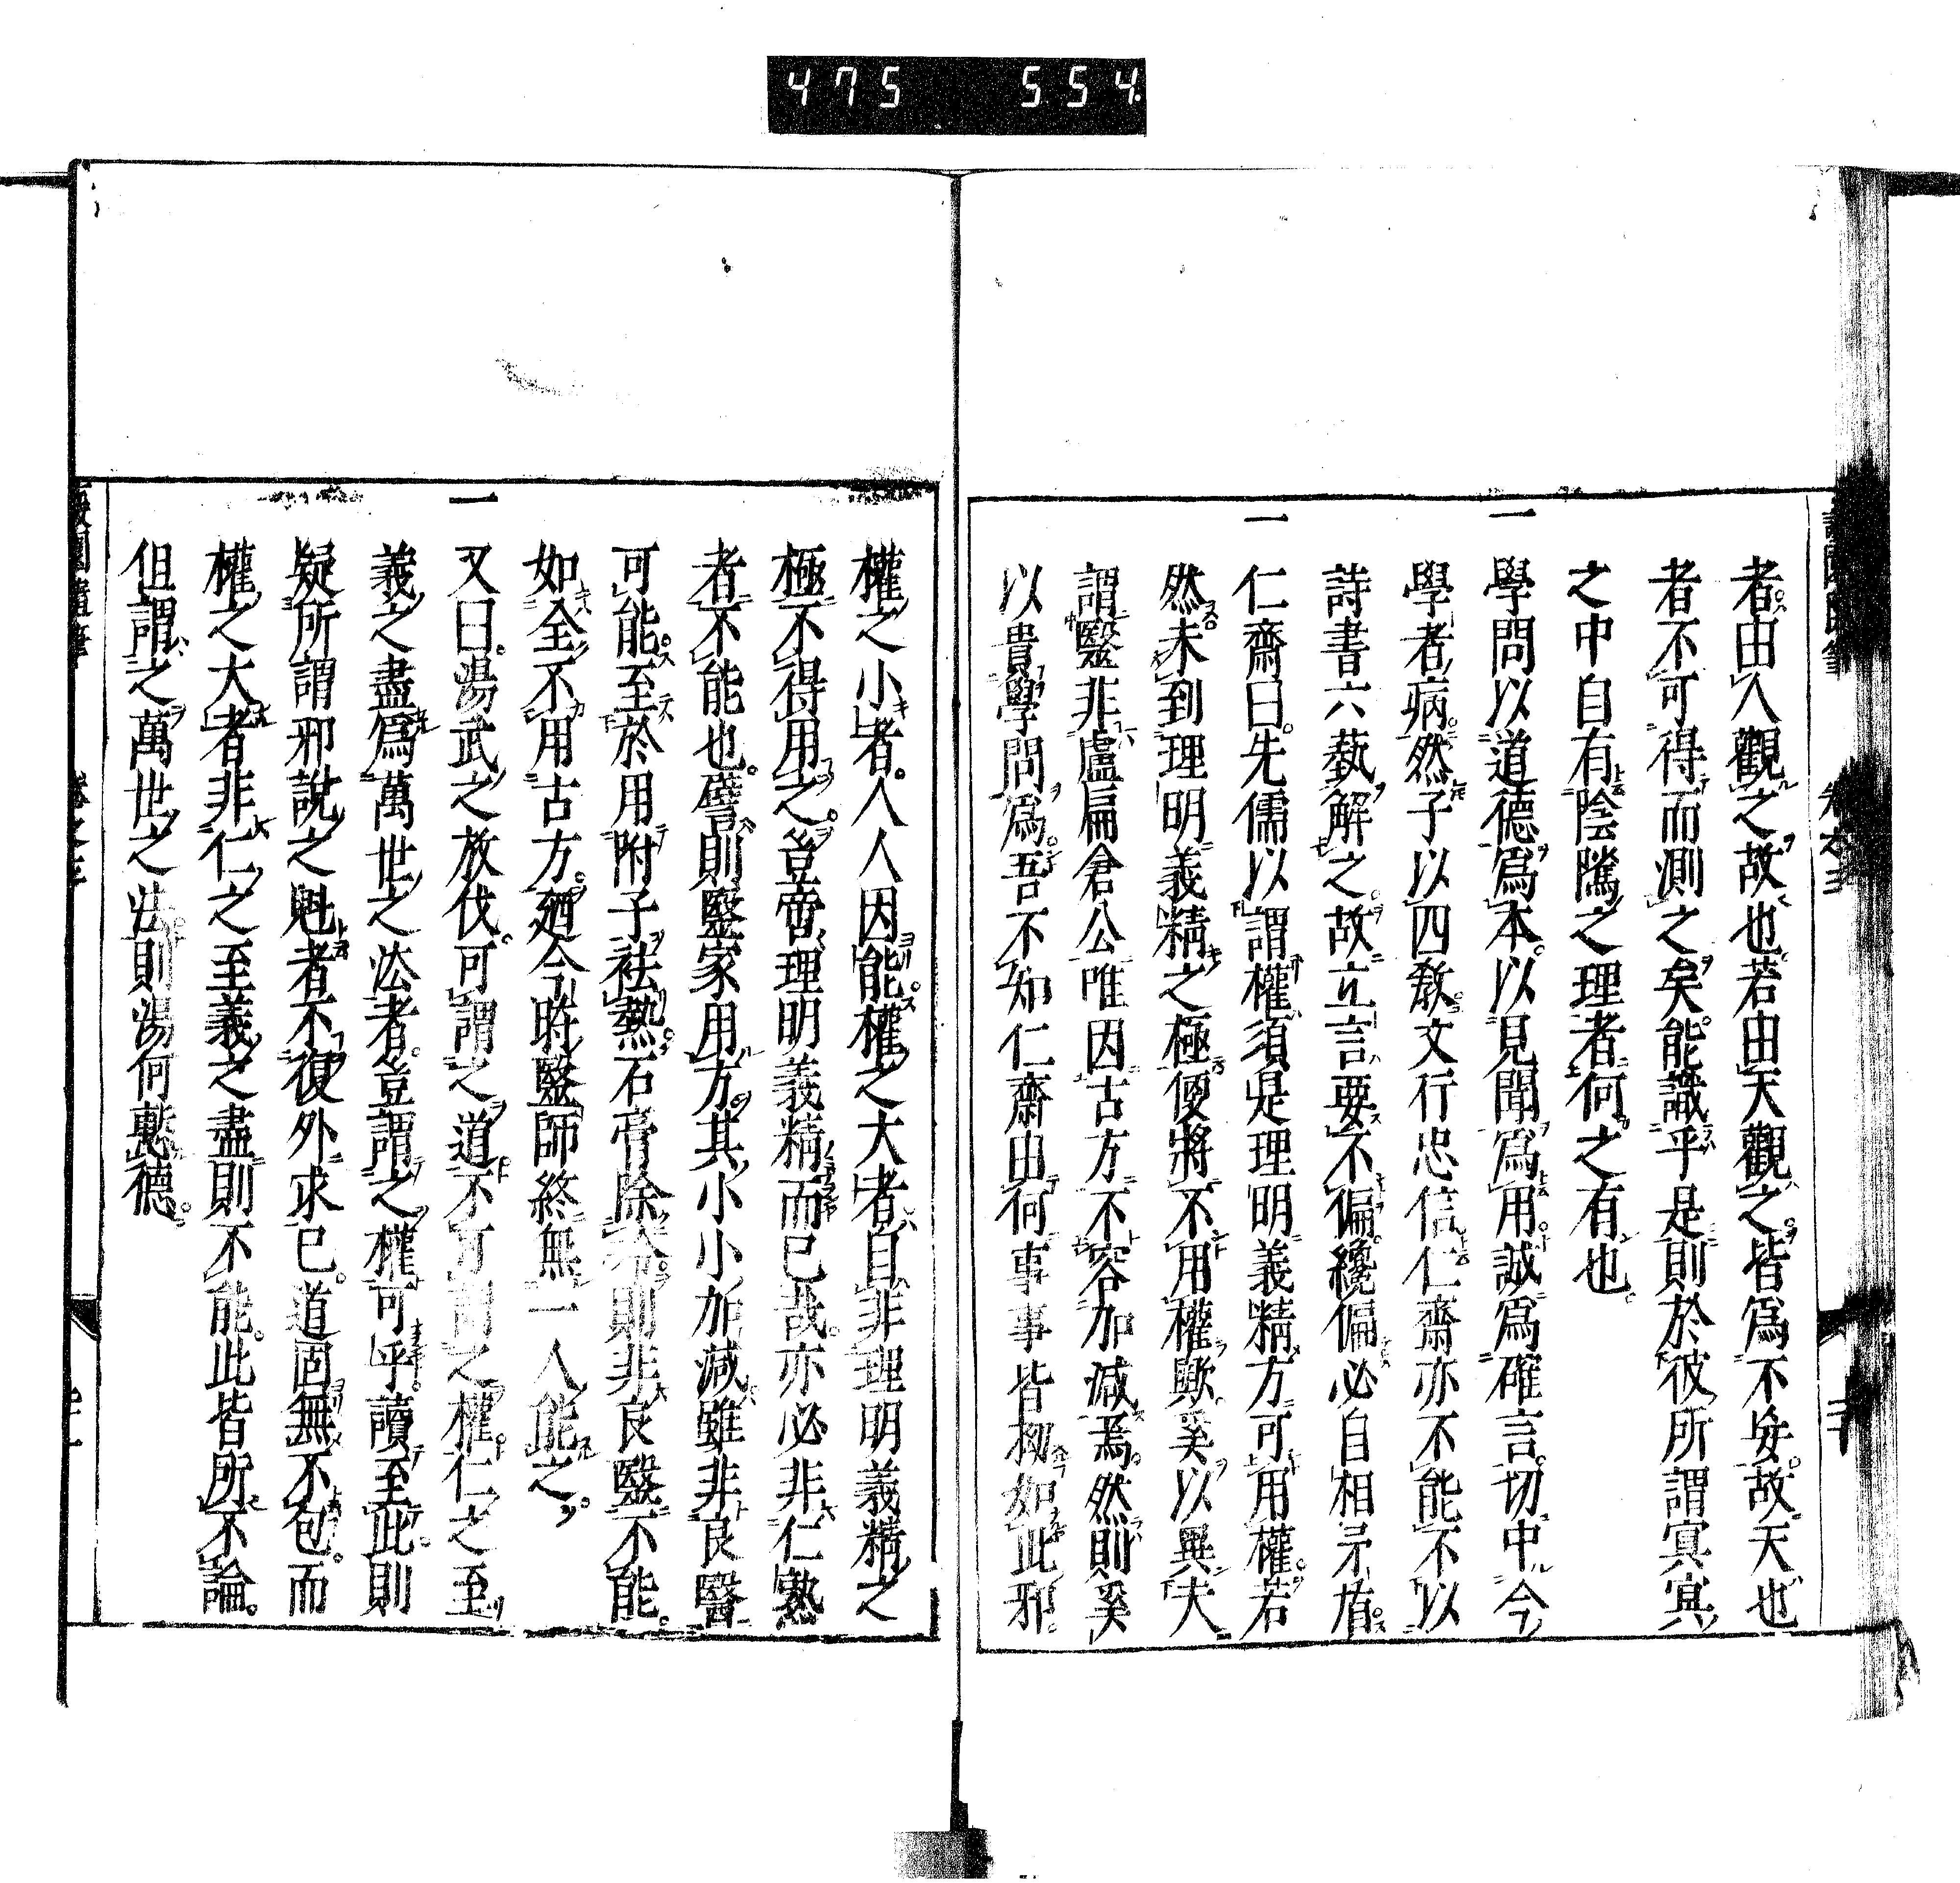 475 554
者由人觀之故也若由天觀之皆爲不妄故天也
者不可得而測之矣能識乎是則於彼所謂冥冥
之中自有陰騭之理者何之有也
一學問以道德爲本以見聞爲用誠爲確言切中今
學者病然子以四敎文行忠信仁齋亦不能不以
詩書六藝解之故立言要不偏纔偏必自相矛盾
一仁齋曰先儒以謂權須是理明義精方可用權若
然未到理明義精之極便將不用權歟奚以異夫
謂醫非盧扁倉公唯因古方不容加減焉然則奚
以貴學問爲吾不知仁齋由何事事皆拗如此邪
權之小者人人因能權之大者自非理明義精之
極不得用之豈啻理明義精而已哉亦必非仁熟
者不能也譬則醫家用方其小小加減雖非良醫
可能至於用附子袪熱石膏除冷則非良醫不能
如全不用古方廼今時醫師終無一人能之
一又曰湯武之放伐可謂之道不可謂之權仁之至
義之盡爲萬世之法者豈謂之權可乎讀至此則
疑所謂邪說之魁者不復外求已道固無不包而
權之大者非仁之至義之盡則不能此皆所不論
但謂之萬世之法則湯何慙德